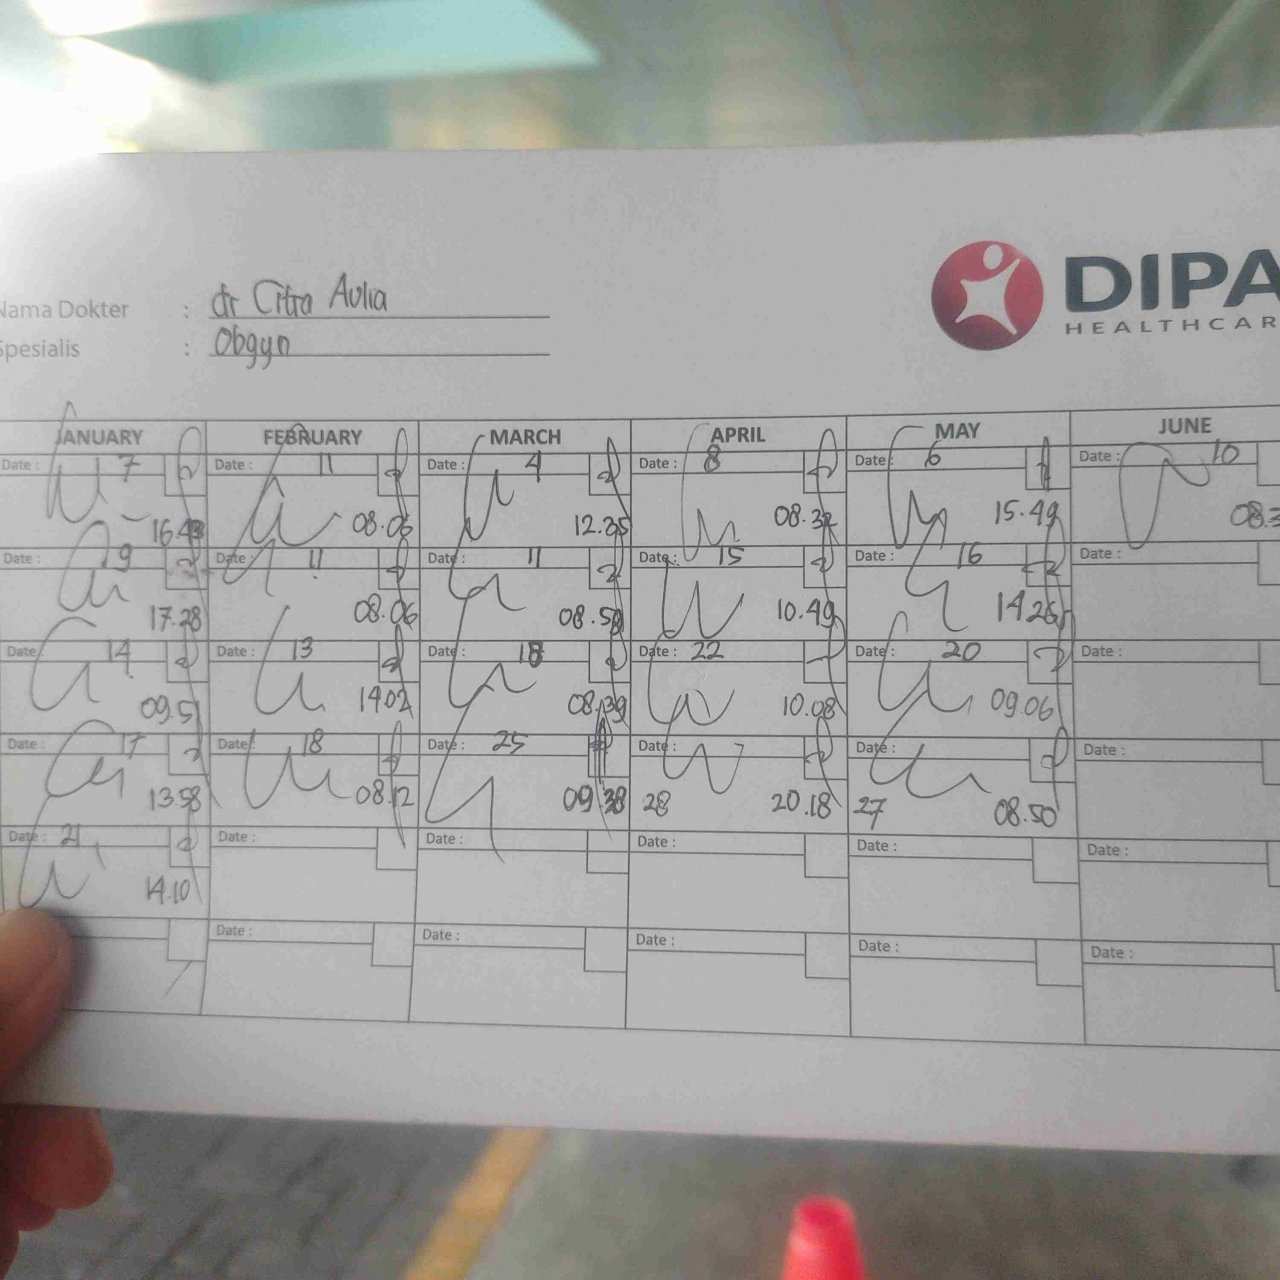 DIPA
HEALTHCAR
Nama Dokter : dr Citra Aulia
Spesialis : Obgyn
JANUARY FEBRUARY MARCH APRIL MAY JUNE
Date : 7 Date : 11 Date : 4 Date : 8 Date : 6 Date : 10
16.43 08.06 12.35 08.32 15.49 08.3
Date : 9 Date : 11 Date : 11 Date : 15 Date : 16 Date :
17.28 08.06 08.59 10.49 14.26
Date : 14 Date : 13 Date : 18 Date : 22 Date : 20 Date :
09.51 14.02 08.39 10.08 09.06
Date : 17 Date : 18 Date : 25 Date : Date : Date :
13.58 08.12 09.38 28 20.18 27 08.50
Date : 21 Date : Date : Date : Date : Date :
14.10
Date : Date : Date : Date : Date :